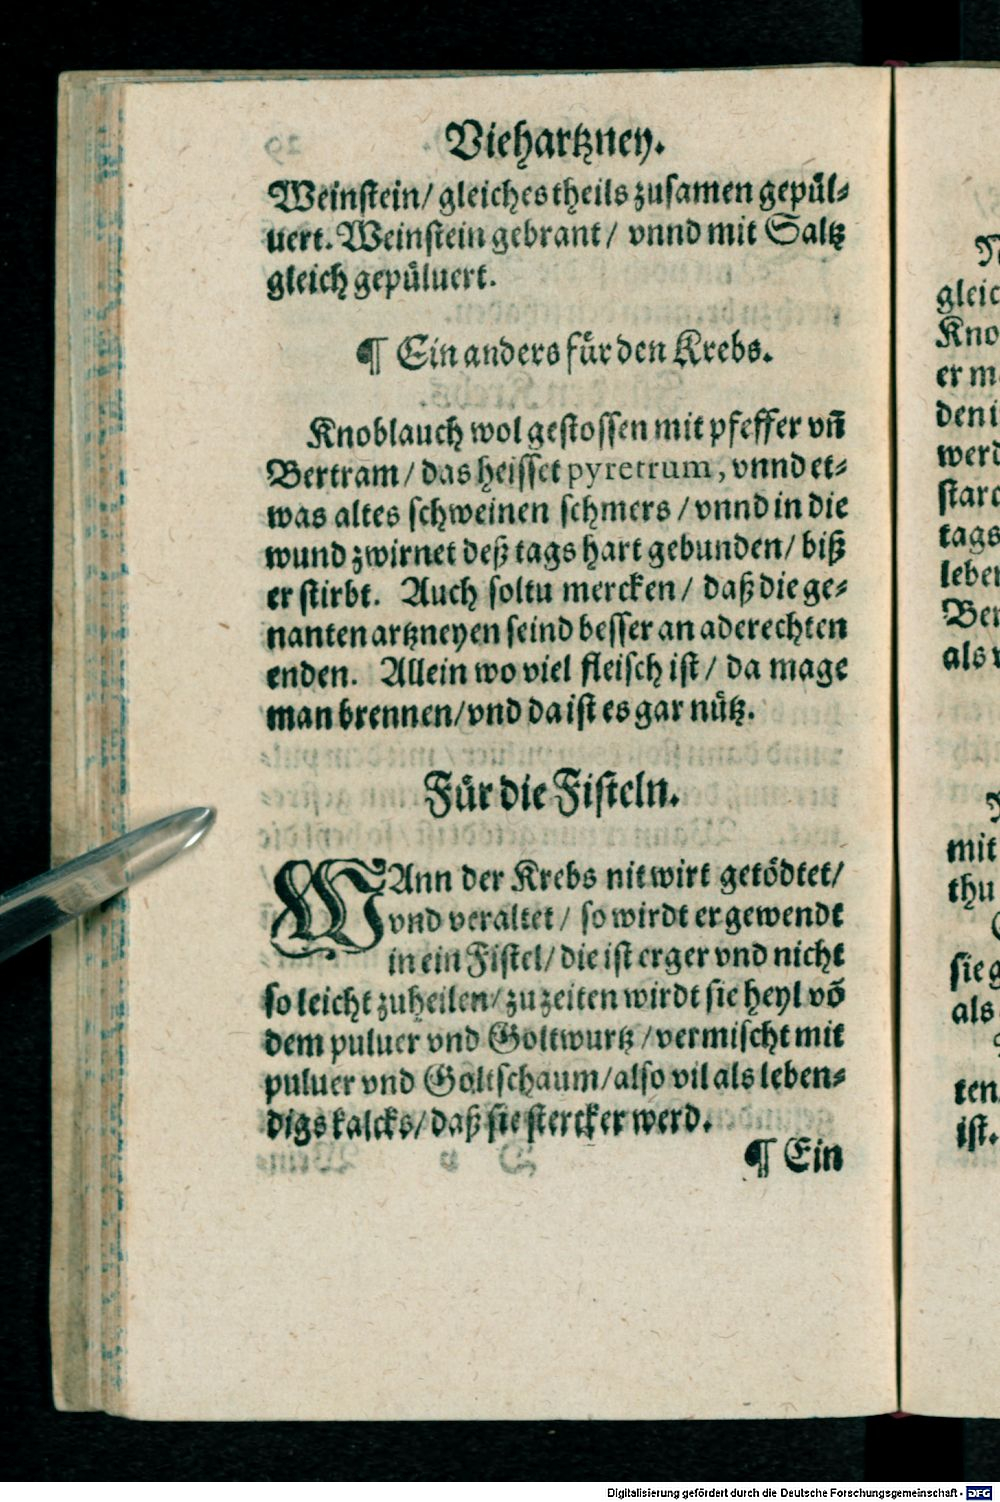 Viehartzney.
Weinstein/ gleiches theils zusamen gepül⸗
uert. Weinstein gebrant/ vnnd mit Saltz
gleich gepüluert.
¶ Ein anders für den Krebs.
Knoblauch wol gestossen mit pfeffer vñ
Bertram/ das heisset pyretrum, vnnd et⸗
was altes schweinen schmers/ vnnd in die
wund zwirnet deß tags hart gebunden/ biß
er stirbt. Auch soltu mercken/ daß die ge⸗
nanten artzneyen seind besser an aderechten
enden. Allein wo viel fleisch ist/ da mage
man brennen/ vnd da ist es gar nütz.
Für die Fisteln.
WAnn der Krebs nit wirt getödtet/
vnd veraltet/ so wirdt er gewendt
in ein Fistel/ die ist erger vnd nicht
so leicht zuheilen/ zu zeiten wirdt sie heyl võ
dem puluer vnd Goltwurtz/ vermischt mit
puluer vnd Goltschaum/ also vil als leben⸗
digs kalcks/ daß sie stercker werd.
¶ Ein
gleic
Kno
er m
den i
werd
starc
tags
leben
Ber
als v
mit
thu
sie g
als
ten
ist.
Digitalisierung gefördert durch die Deutsche Forschungsgemeinschaft - DFG